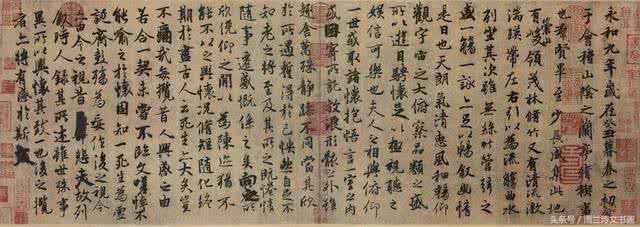 永和九年歲在癸丑暮春之初會
于會稽山陰之蘭亭脩禊事
也羣賢畢至少長咸集此地
有崇山峻領茂林脩竹又有清流激
湍暎帶左右引以為流觴曲水
列坐其次雖無絲竹管弦之
盛一觴一詠亦足以暢敘幽情
是日也天朗氣清惠風和暢仰
觀宇宙之大俯察品類之盛
所以遊目騁懷足以極視聽之
娛信可樂也夫人之相與俯仰
一世或取諸懷抱悟言一室之內
或因寄所託放浪形骸之外雖
趣舍萬殊靜躁不同當其欣
於所遇蹔得於己怏然自足不
知老之將至及其所之既惓情
隨事遷感慨係之矣向之所
欣俛仰之閒以為陳迹猶不
能不以之興懷況脩短隨化終
期於盡古人云死生亦大矣豈
不痛哉每攬昔人興感之由
若合一契未嘗不臨文嗟悼不
能喻之於懷固知一死生為虛
誕齊彭殤為妄作後之視今
亦由今之視昔悲夫故列
敘時人錄其所述雖世殊事
異所以興懷其致一也後之攬
者亦將有感於斯文
头条号 / 博兰诗文书画